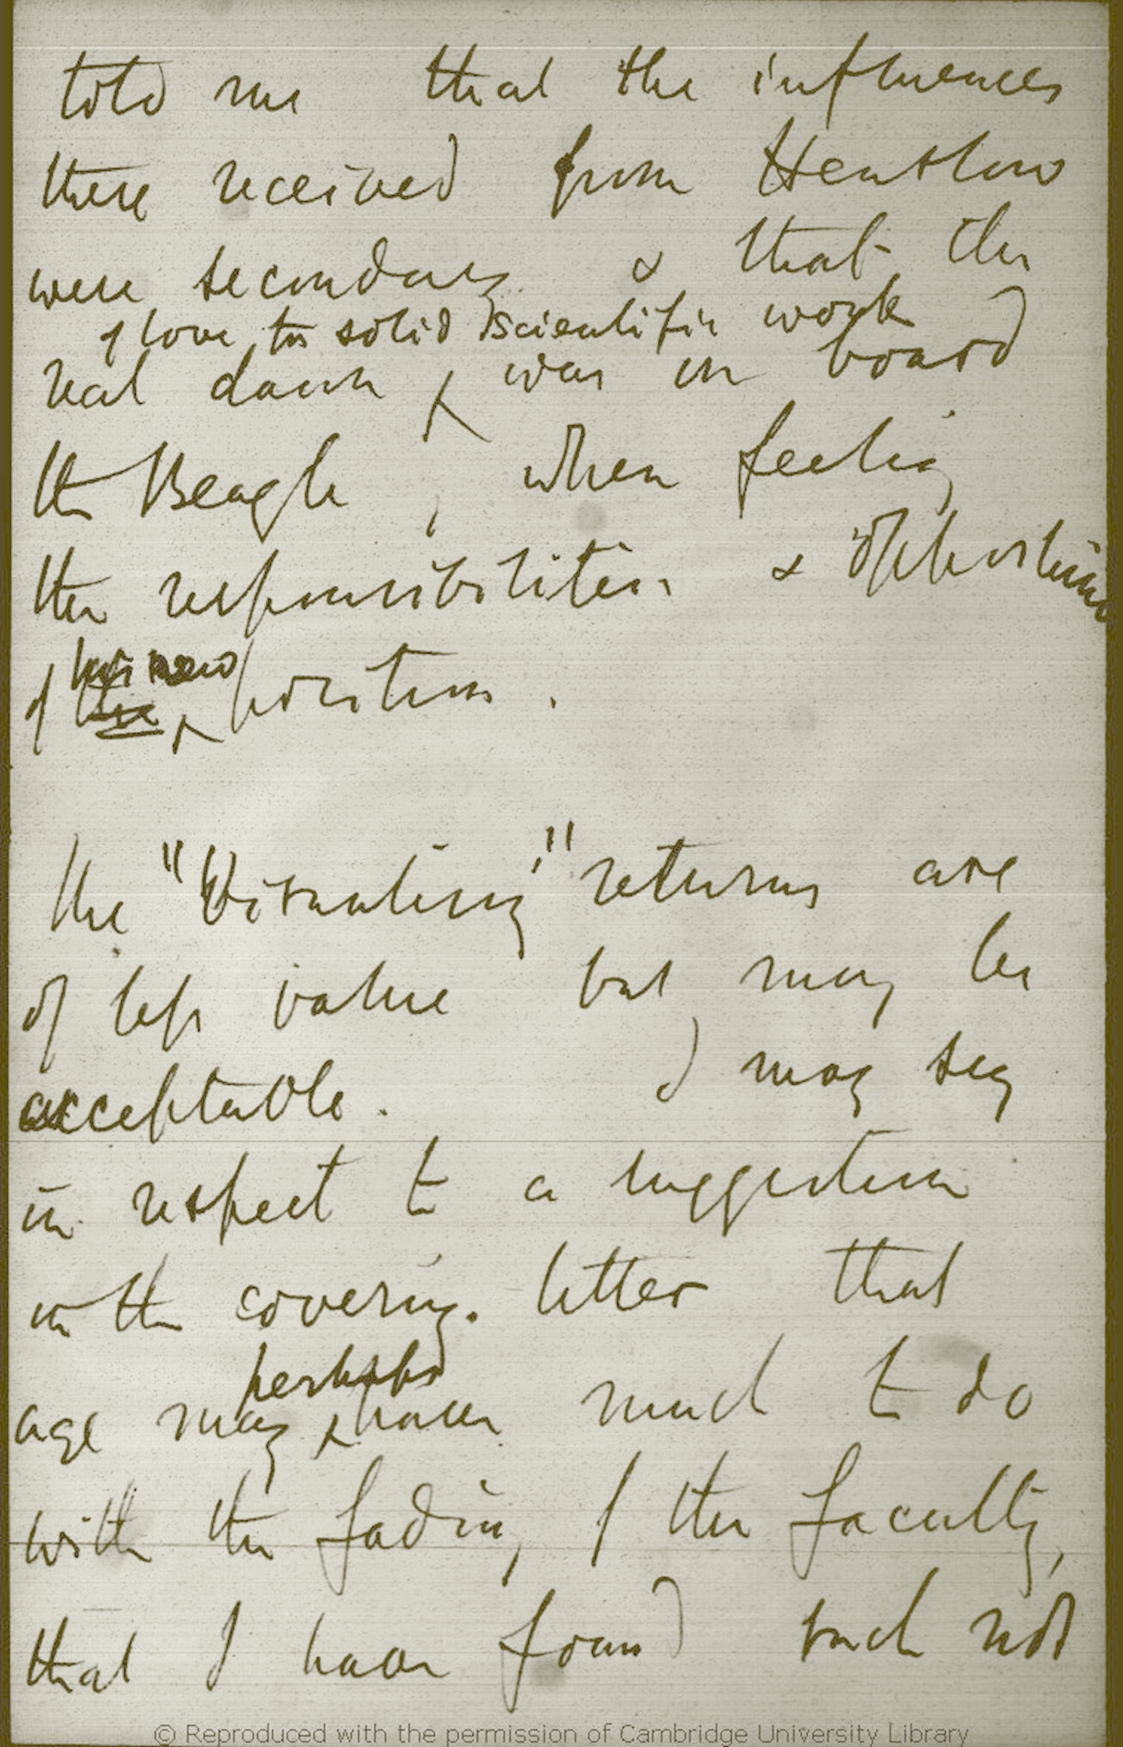 told me that the influences
there received from Henslow
were secondary & that the
of love for solid scientific work
real dawn ʌ was on board
the Beagle, when feeling
the responsibilities & opportunities
his new
of the ʌ position.
the "Visualising" returns are
of less value but may be
acceptable. I may say
in respect to a suggestion
in the covering letter that
perhaps
age may ʌ have much to do
with the fading of the faculty,
that I have found such not
© Reproduced with the permission of Cambridge University Library